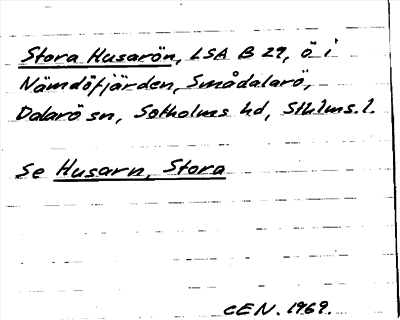 Stora Husarön, LSA B 29, ö i
Nämdöfjärden, Smådalarö,
Dalarö sn, Sotholms hd, Sthlms. l.
Se Husarn, Stora
CEN. 1969.